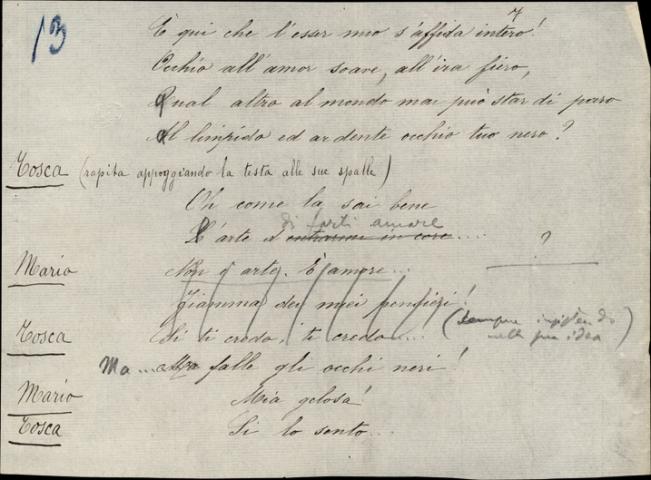 13
È qui che l'esser mio s'affida intero!
Occhio all'amor soave, all'ira fiero,
Qual altro al mondo mai può star di paro
Al limpido ed ardente occhio tuo nero?
Tosca (rapita appoggiando la testa alle sue spalle)
Oh come la sai bene
di farti amare
L'arte d' entrarmi in core.... ?
Mario Non è arte. È amore...
Fiamma dei miei pensieri!
Tosca Si ti credo, ti credo.... (sempre insistendo
nella sua idea)
Ma... falle gli occhi neri!
Mario Mia gelosa!
Tosca Si lo sento...